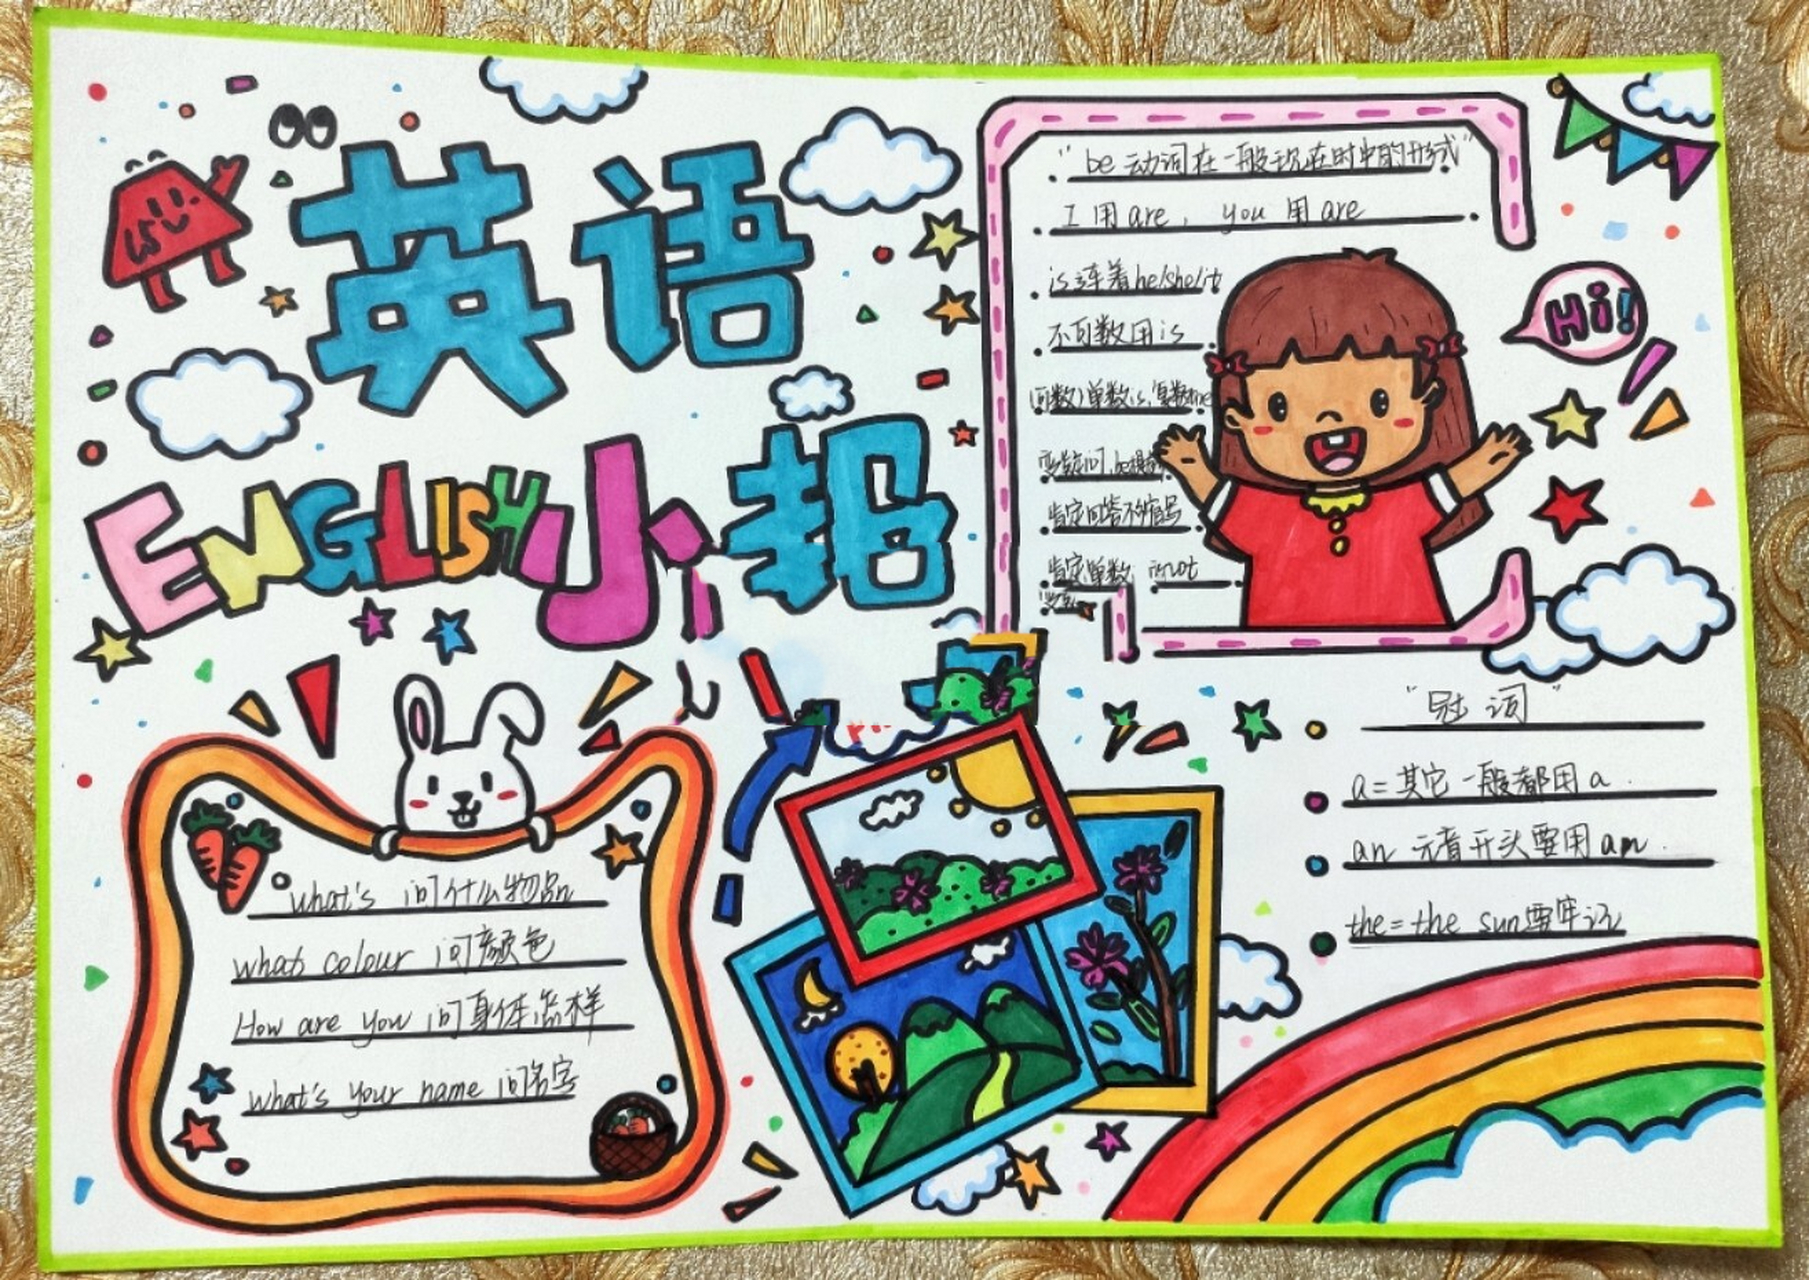 英语
ENGLISH小报
"be动词在一般现在时中的形式"
I用are, you用are
is连着he/she/it
不可数用is
(可数)单数is,复数are
肯定回答不缩写
Hi!
"冠词"
a=其它一般都用a.
an 元音开头要用an.
the=the sun要牢记
what's 问什么物品
what colour 问颜色
How are you 问身体怎样
what's your name 问名字